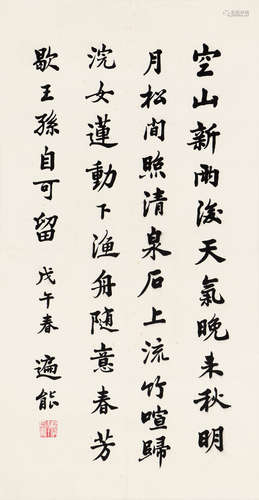 空山新雨後天氣晚来秋明
月松間照清泉石上流竹喧歸
浣女蓮動下漁舟随意春芳
歇王孫自可留 戊午春 遍能